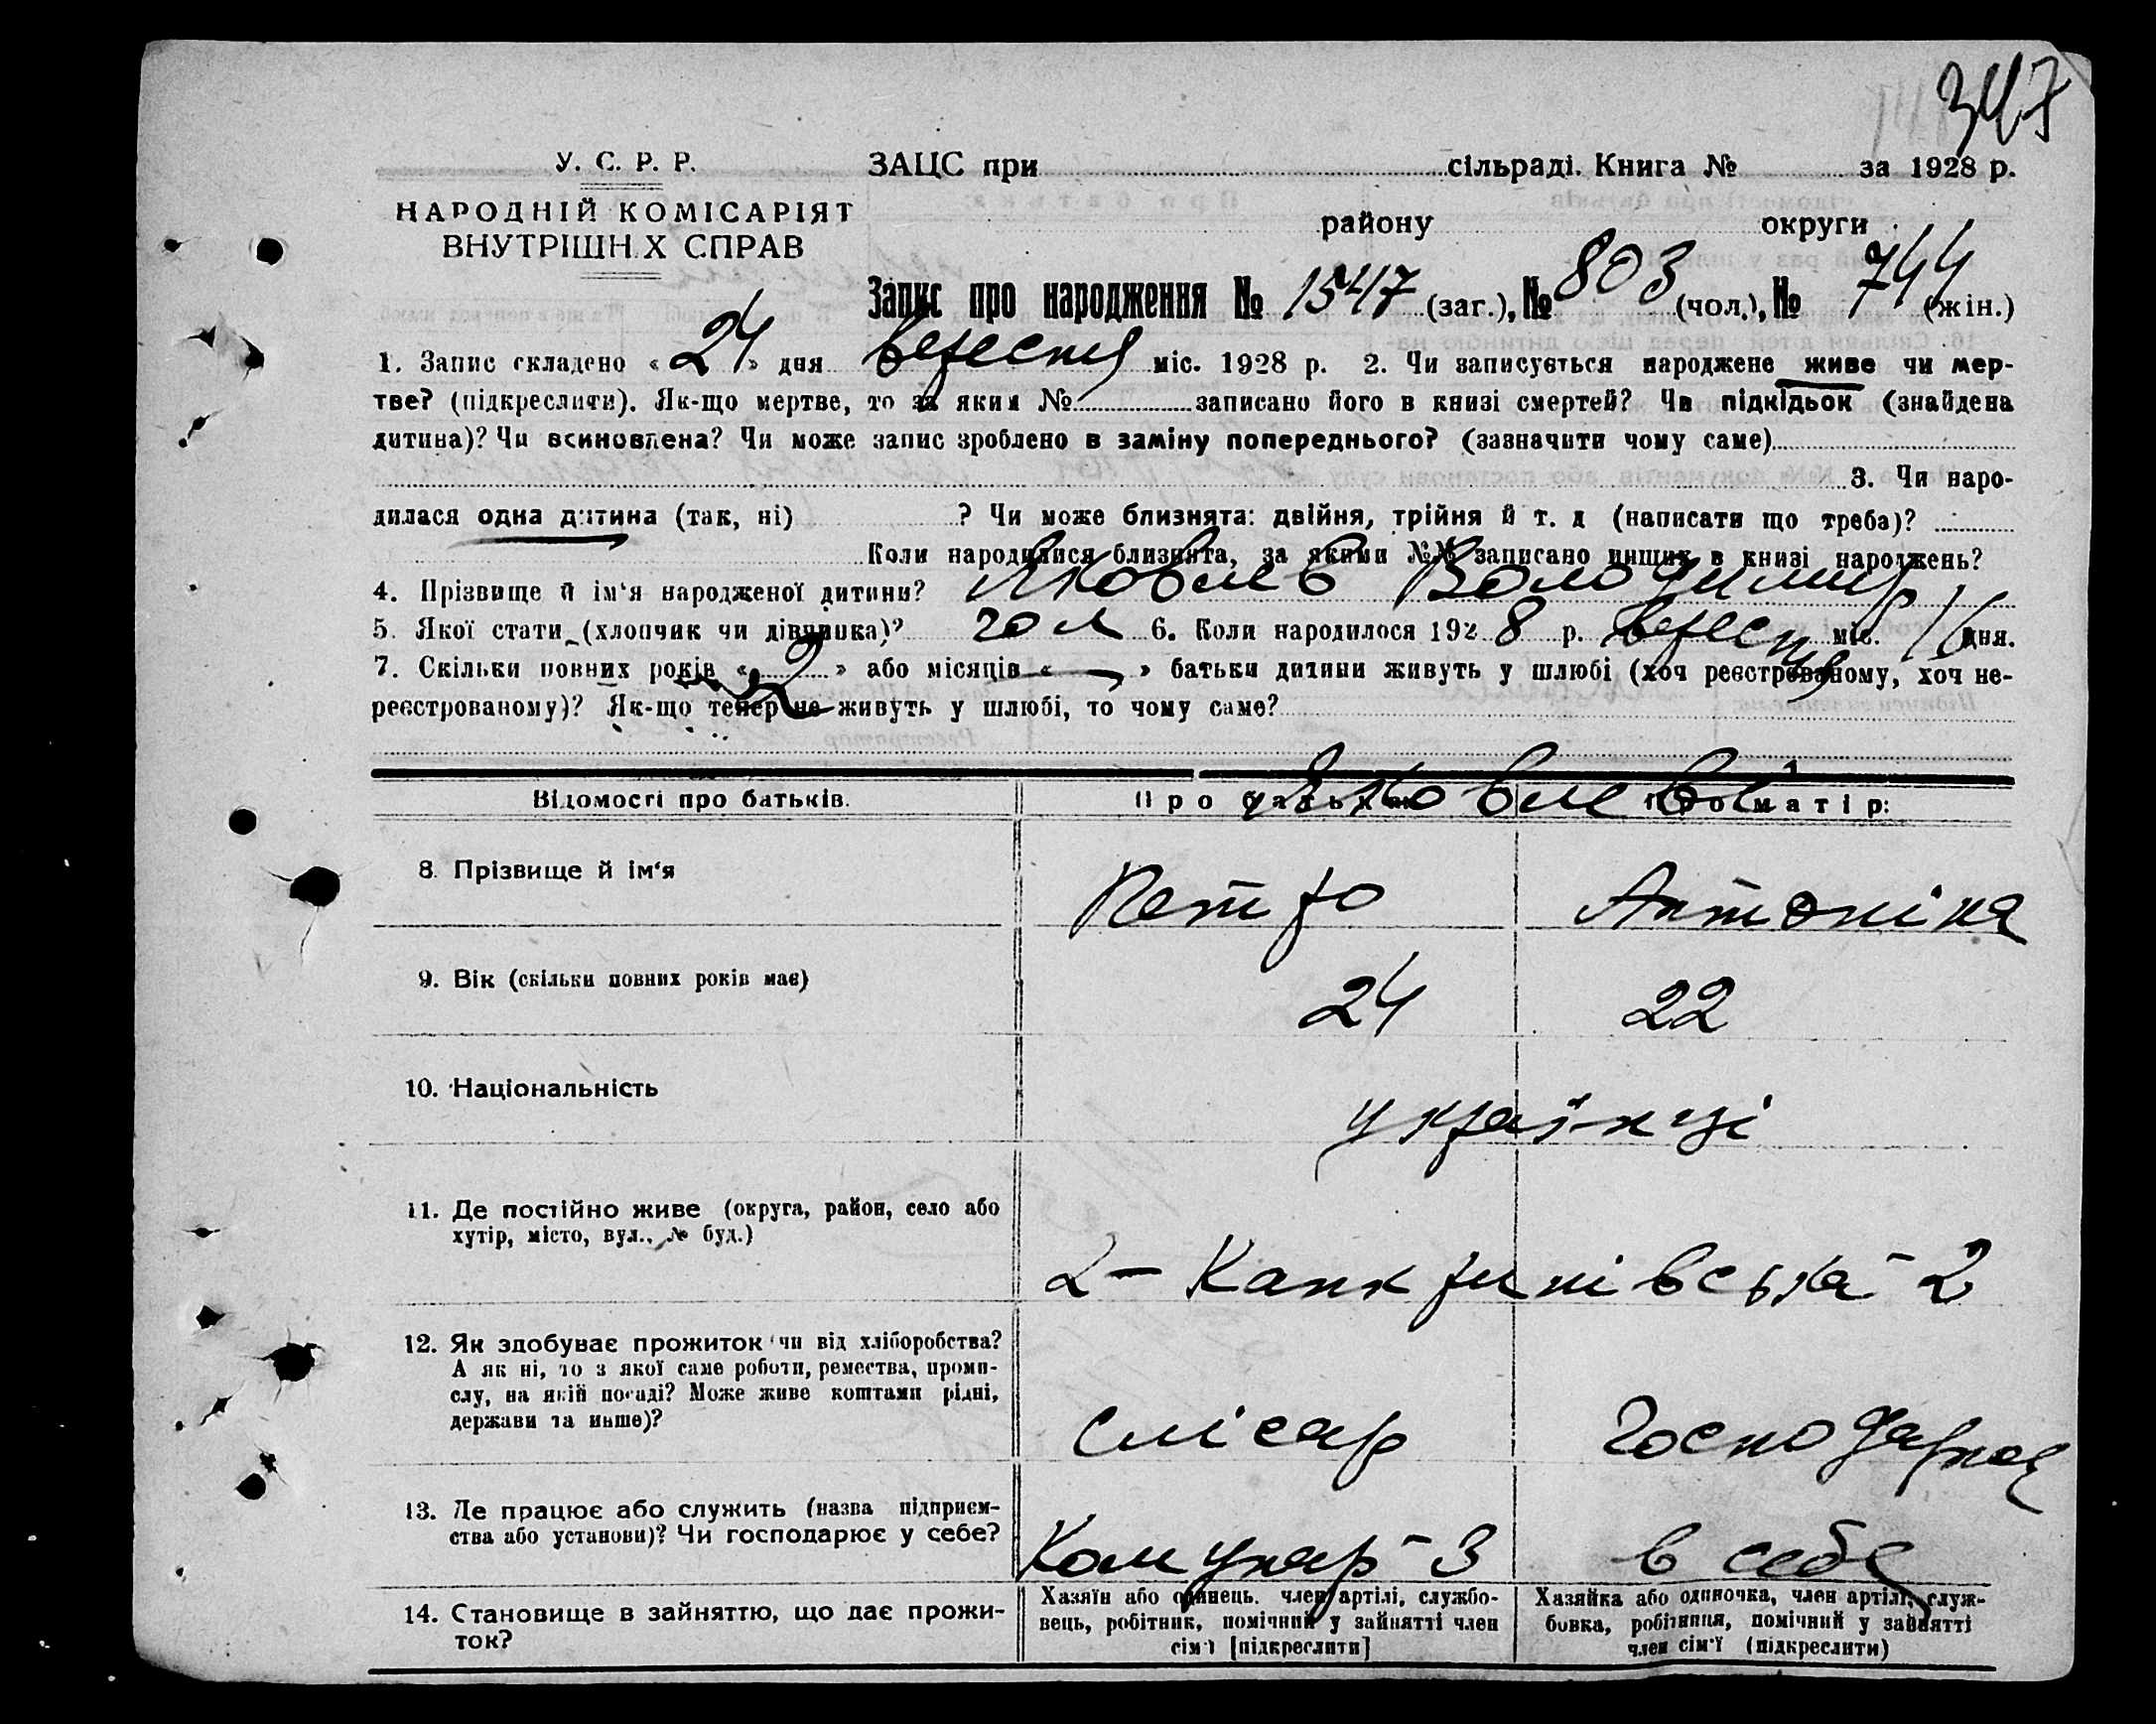 347
У. С. Р. Р.
НАРОДНІЙ КОМІСАРІЯТ
ВНУТРІШН Х СПРАВ
ЗАЦС при сільраді. Книга № за 1928 р.
району округи
Запис про народження № 1547 (заг.), № 803 (чол.), № 744 (жін.)
1. Запис складено « 24 » дня вересня міс. 1928 р. 2. Чи записується народжене живе чи мер-
тве? (підкреслити). Як-що мертве, то за яким № записано його в книзі смертей? Чи підкідьок (знайдена
дитина)? Чи всиновлена? Чи може запис зроблено в заміну попереднього? (зазначити чому саме)
3. Чи наро-
дилася одна дитина (так, ні) ? Чи може близнята: двійня, трійня й т. д (написати що треба)?
Коли народилися близнята, за якими №№ записано инших в книзі народжень?
4. Прізвище й ім'я народженої дитини? Яковлєв Володимир
5. Якої стати (хлопчик чи дівчинка)? чол 6. Коли народилося 1928 р. вересня міс. 16 дня.
7. Скільки повних років « 2 » або місяців « — » батьки дитини живуть у шлюбі (хоч реєстрованому, хоч не-
реєстрованому)? Як-що тепер не живуть у шлюбі, то чому саме?
Відомості про батьків. Про батька: Про матір:
Яковлеви
8. Прізвище й ім'я Петро Антоніна
9. Вік (скільки повних років має) 24 22
10. Національність українці
11. Де постійно живе (округа, район, село або
хутір, місто, вул., № буд.) 2 – Канкринівська – 2
12. Як здобуває прожиток чи від хліборобства?
А як ні, то з якої саме роботи, ремества, проми-
слу, на якій посаді? Може живе коштами рідні,
держави та инше)? Слісар Господарная
13. Де працює або служить (назва підприєм-
ства або установи)? Чи господарює у себе? Комунар – 3 в себе
14. Становище в зайняттю, що дає прожи-
ток?
Хазяїн або одинець. член артілі, службо-
вець, робітник, помічний у зайнятті член
сім'ї [підкреслити]
Хазяйка або одиночка, член артілі, служ-
бовка, робітниця, помічний у зайнятті
член сім'ї (підкреслити)